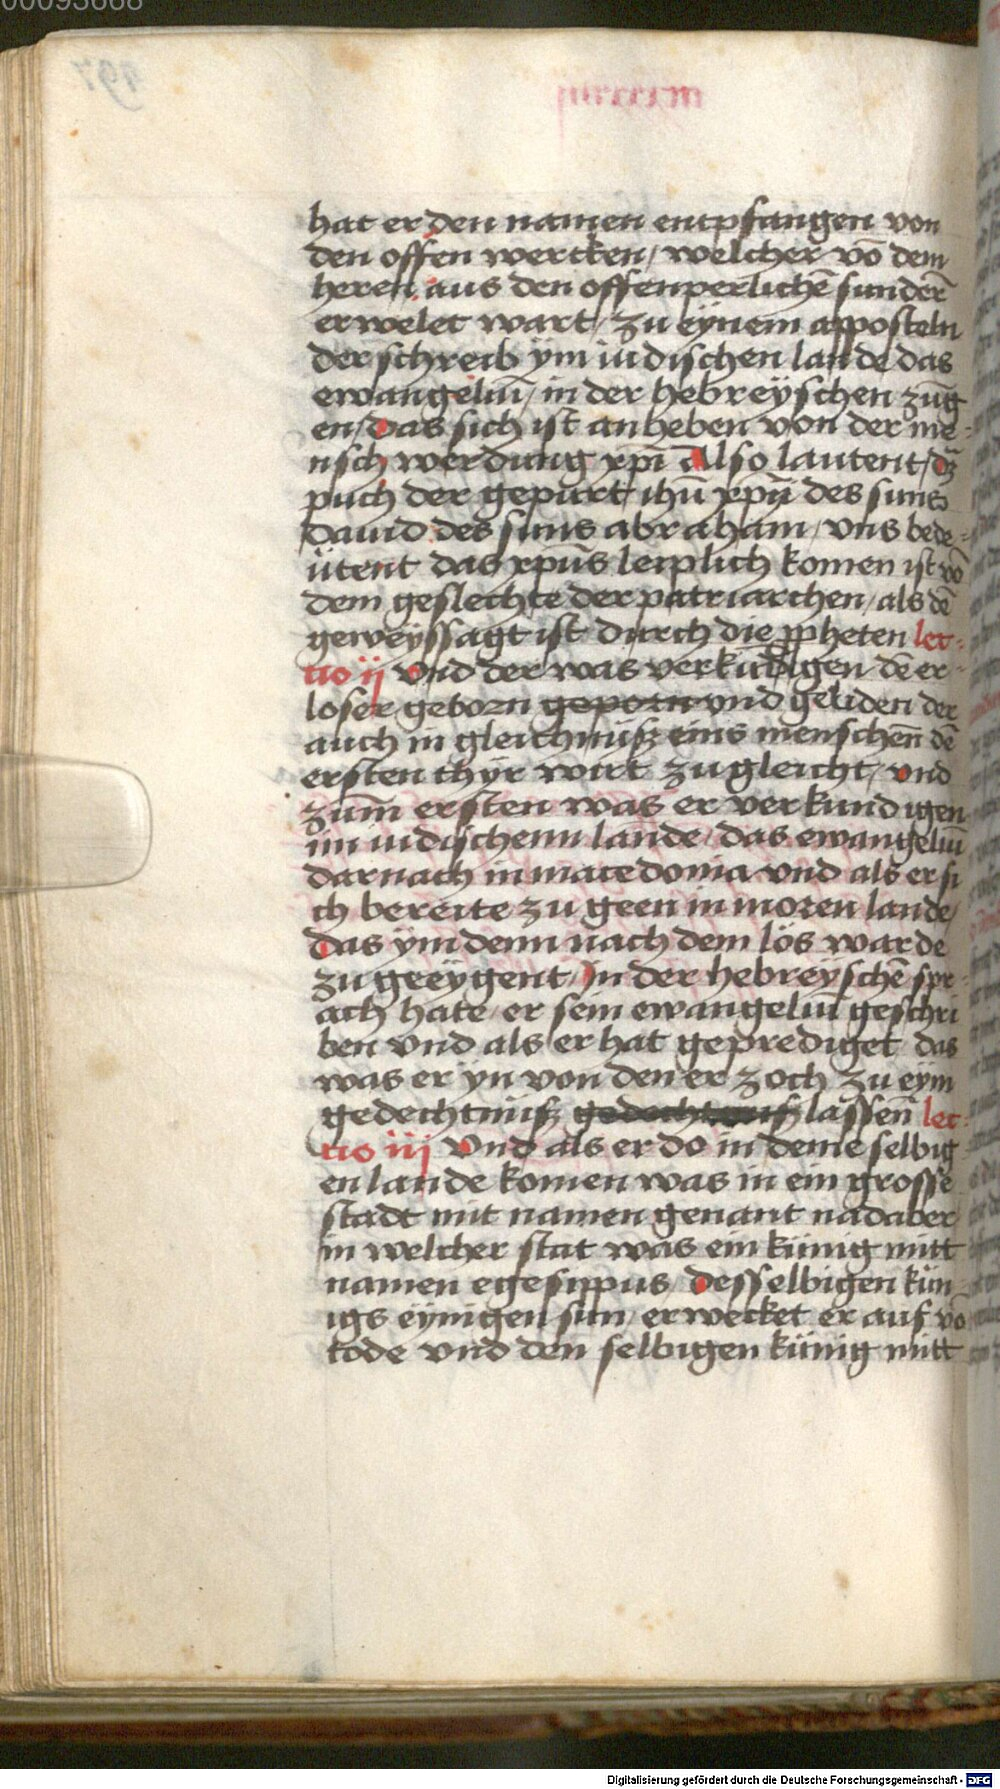 00093668
hat er den namen entpfangen von
den offen wercken / welcher vō dem
heren aus den offenperlichē sunderē
erwelet wart / zu eÿnem apposteln
der schreib ÿm iudischen lande das
ewangeliū / in der hebreÿschen zūg
en / das sich ist anheben von der me-
nsch werdung xpi Also lautent / dz
puch der gepurt ihū xpi des suns
dauid des suns abraham / vns bede-
ütent das xpūs leiplich komen ist vō
dem geslechte der patriarchen / als dē
geweÿssagt ist durch die ppheten lec-
tio ij Vnd der was verkündigen dē er-
loser geborn geporn vnd geliden der
auch in gleichnüsz eins menschen dē
ersten thÿr wirt zu gleicht / vnd
zum ersten was er verkundigen
im iudischenn lande / das ewangeliū
darnach in macedonia vnd als er si
ch bereite zu geen in moren lande /
das ÿm denn nach dem lös warde
zu geeÿgent / in der hebreÿschē spr-
ach hate er sein ewangeliū geschri
ben vnd als er hat geprediget das
was er ÿn von den er zoch zu eÿm
gedechtnüsz gedechtnusz lassenn lec-
tio iij Vnd als er do in deme selbig
en lande komen was in ein grosse
stadt mit namen genant nadaber
in welcher stat was ein künig mitt
namen egesippus / desselbigen kün-
igs eÿnigen sun / erwecket er auf vō
tode vnd den selbigen künig mitt
Digitalisierung gefördert durch die Deutsche Forschungsgemeinschaft - DFG